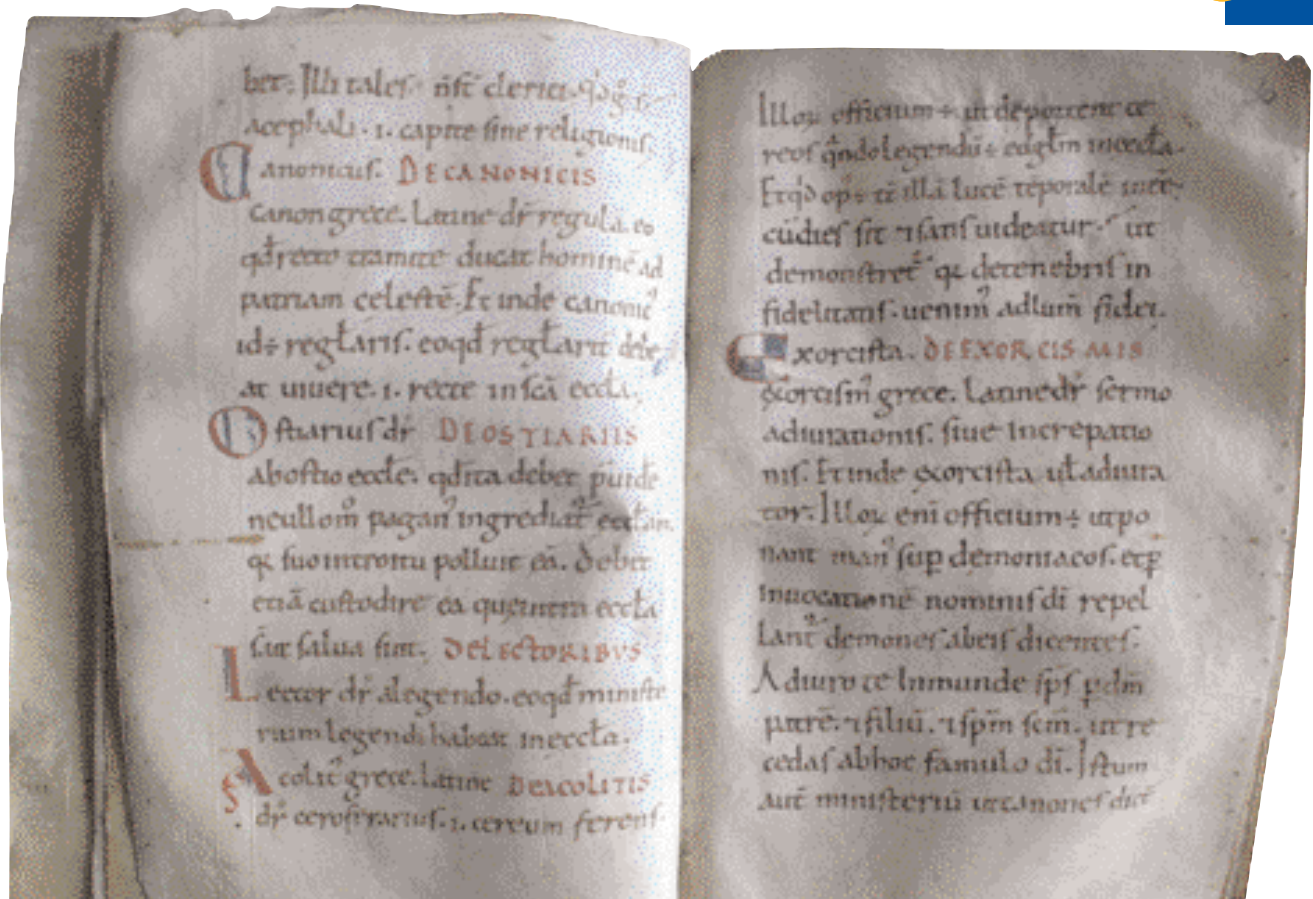 ber. Illi tales. nst̄ clerici.
acephali. i. capite sine religionis.
Canonicus. DECANONICIS
canon grece. Latine dr̄ regula. eo
qd̄ recto tramite ducat hominē ad
patriam celestē. Et inde canonic᷒
id÷ regłaris. eoqd̄ regłarit̄ debe
at uiuere. i. recte in scā eccła.
Ostiarius dr̄ DEOSTIARIIS
abostio eccłe. qd̄ita debet
neullom̄ pagan᷒ ingrediat᷒ eccłam.
suointroitu polluit eā. Debet
etiā custodire ea que
salua sint. DELECTORIBVS
Lector dr̄ alegendo. eoqd̄ministe
rium legendi habeat ineccła.
Acolit᷒ grece. latine DEACOLITIS
dr̄ ceroferarius. i. cereum ferens
Illoꝝ officium÷ utdeportent ce
reos q̄ndolegendū÷ euḡłm ineccła.
Etqd op÷ illā lucē tēporalē
cūdies sit ⁊sans uideatur. ut
demonstret᷒ detenebris in
fidelitatis. uenim᷒ adlum̄ fidei.
Exorcista. DEEXORCISMIS
exorcism᷒ grece. Latinedr̄ sermo
adiurationis. siue increpatio
nis. Et inde exorcista. uł adiura
tor. Illoꝝ eni officium÷ utpo
nant man᷒ suꝑ demoniacos. etꝑ
inuocationē nominis dī repel
lant demones abeis dicentes.
Adiuro te Inmunde sp̄s ꝑdm̄
patrē. ⁊filiū. ⁊spm̄ scm̄. ut re
cedas abhoc famulo dī. Istum
aut̄ ministeriū utcanones dic̄t